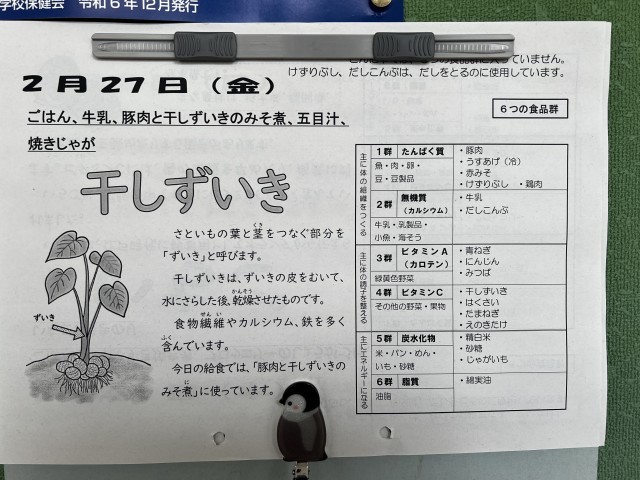 学校保健会 令和6年12月発行
ていません。
けずりぶし、だしこんぶは、だしをとるのに使用しています。
2月27日（金）
ごはん、牛乳、豚肉と干しずいきのみそ煮、五目汁、
焼きじゃが
干しずいき
さといもの葉と茎をつなぐ部分を
「ずいき」と呼びます。
干しずいきは、ずいきの皮をむいて、
水にさらした後、乾燥させたものです。
食物繊維やカルシウム、鉄を多く
含んでいます。
今日の給食では、「豚肉と干しずいきの
みそ煮」に使っています。
ずいき
6つの食品群
主に体の組織をつくる
1群 たんぱく質
魚・肉・卵・
豆・豆製品
・豚肉
・うすあげ（冷）
・赤みそ
・けずりぶし ・鶏肉
2群 無機質
（カルシウム）
牛乳・乳製品・
小魚・海そう
・牛乳
・だしこんぶ
主に体の調子を整える
3群 ビタミンA
（カロテン）
緑黄色野菜
・青ねぎ
・にんじん
・みつば
4群 ビタミンC
その他の野菜・果物
・干しずいき
・はくさい
・たまねぎ
・えのきたけ
主にエネルギーになる
5群 炭水化物
米・パン・めん・
いも・砂糖
・精白米
・砂糖
・じゃがいも
6群 脂質
油脂
・綿実油